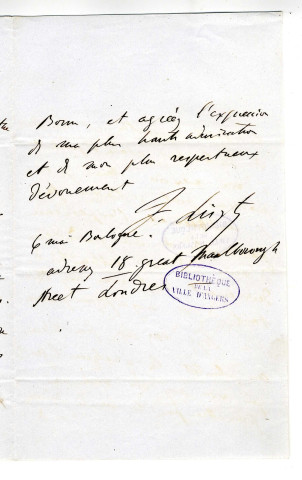 Bonn, et agréez l'expression
de ma plus haute admiration
et de mon plus respectueux
dévouement
F. Liszt
6 mai Boulogne.
adressez 18 great Maalborough
street Londres
BIBLIOTHÈQUE
DE LA
VILLE D'ANGERS